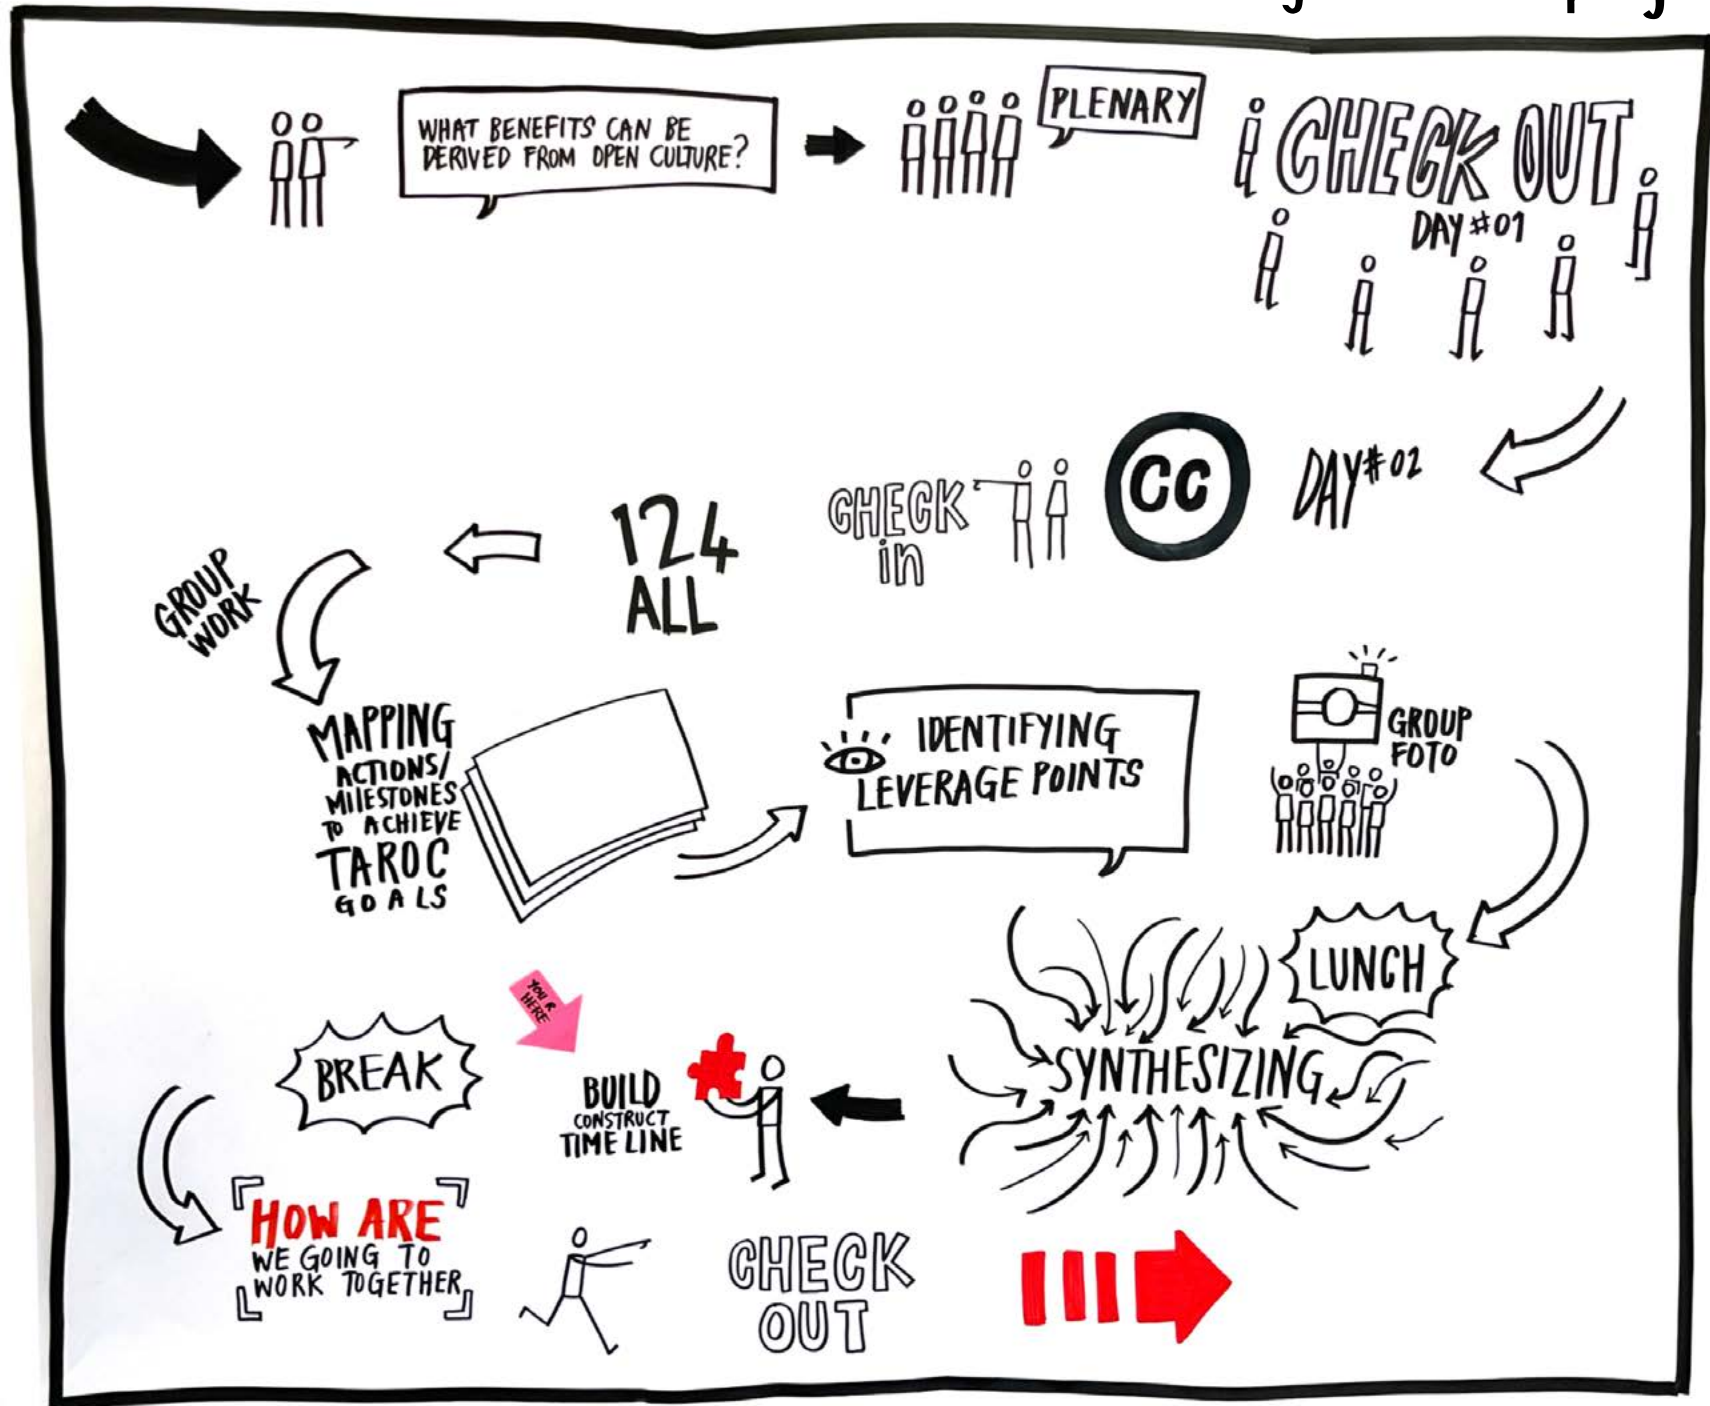 WHAT BENEFITS CAN BE
DERIVED FROM OPEN CULTURE?
PLENARY
CHECK OUT
DAY #01
DAY #02
CC
CHECK
in
124
ALL
GROUP
WORK
MAPPING
ACTIONS/
MILESTONES
TO ACHIEVE
TAROC
GOALS
IDENTIFYING
LEVERAGE POINTS
GROUP
FOTO
LUNCH
SYNTHESIZING
YOU R
HERE
BUILD
CONSTRUCT
TIME LINE
BREAK
HOW ARE
WE GOING TO
WORK TOGETHER
CHECK
OUT